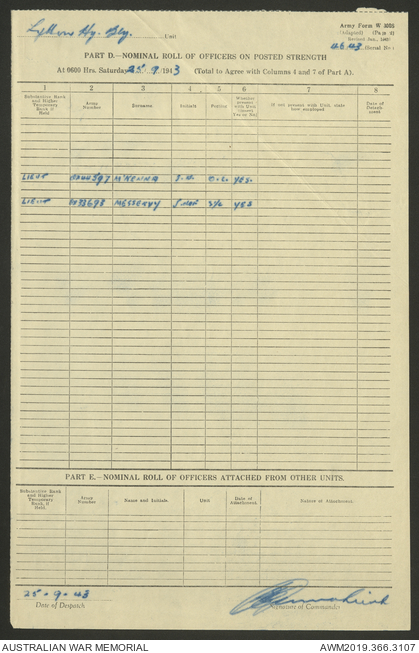 Lytton Hy. Bty. Unit
Army Form W 3008
(Adapted) (Page 4)
Revised Jan., 1943
4643 (Serial No.)
PART D.—NOMINAL ROLL OF OFFICERS ON POSTED STRENGTH
At 0600 Hrs. Saturday 25. 9. 1943 (Total to Agree with Columns 4 and 7 of Part A).
1 2 3 4 5 6 7 8
Substantive Rank and Higher Temporary Rank if Held
Army Number
Surname
Initials
Posting
Whether present with Unit (insert Yes or No)
If not present with Unit, state how employed
Date of Detachment
LIEUT M'KENNA O.C. YES.
LIEUT MESSERVY YES
PART E.—NOMINAL ROLL OF OFFICERS ATTACHED FROM OTHER UNITS.
Substantive Rank and Higher Temporary Rank if Held.
Army Number
Name and Initials.
Unit
Date of Attachment.
Nature of Attachment.
25-9-43
Date of Despatch
Signature of Commander
AUSTRALIAN WAR MEMORIAL
AWM2019.366.3107